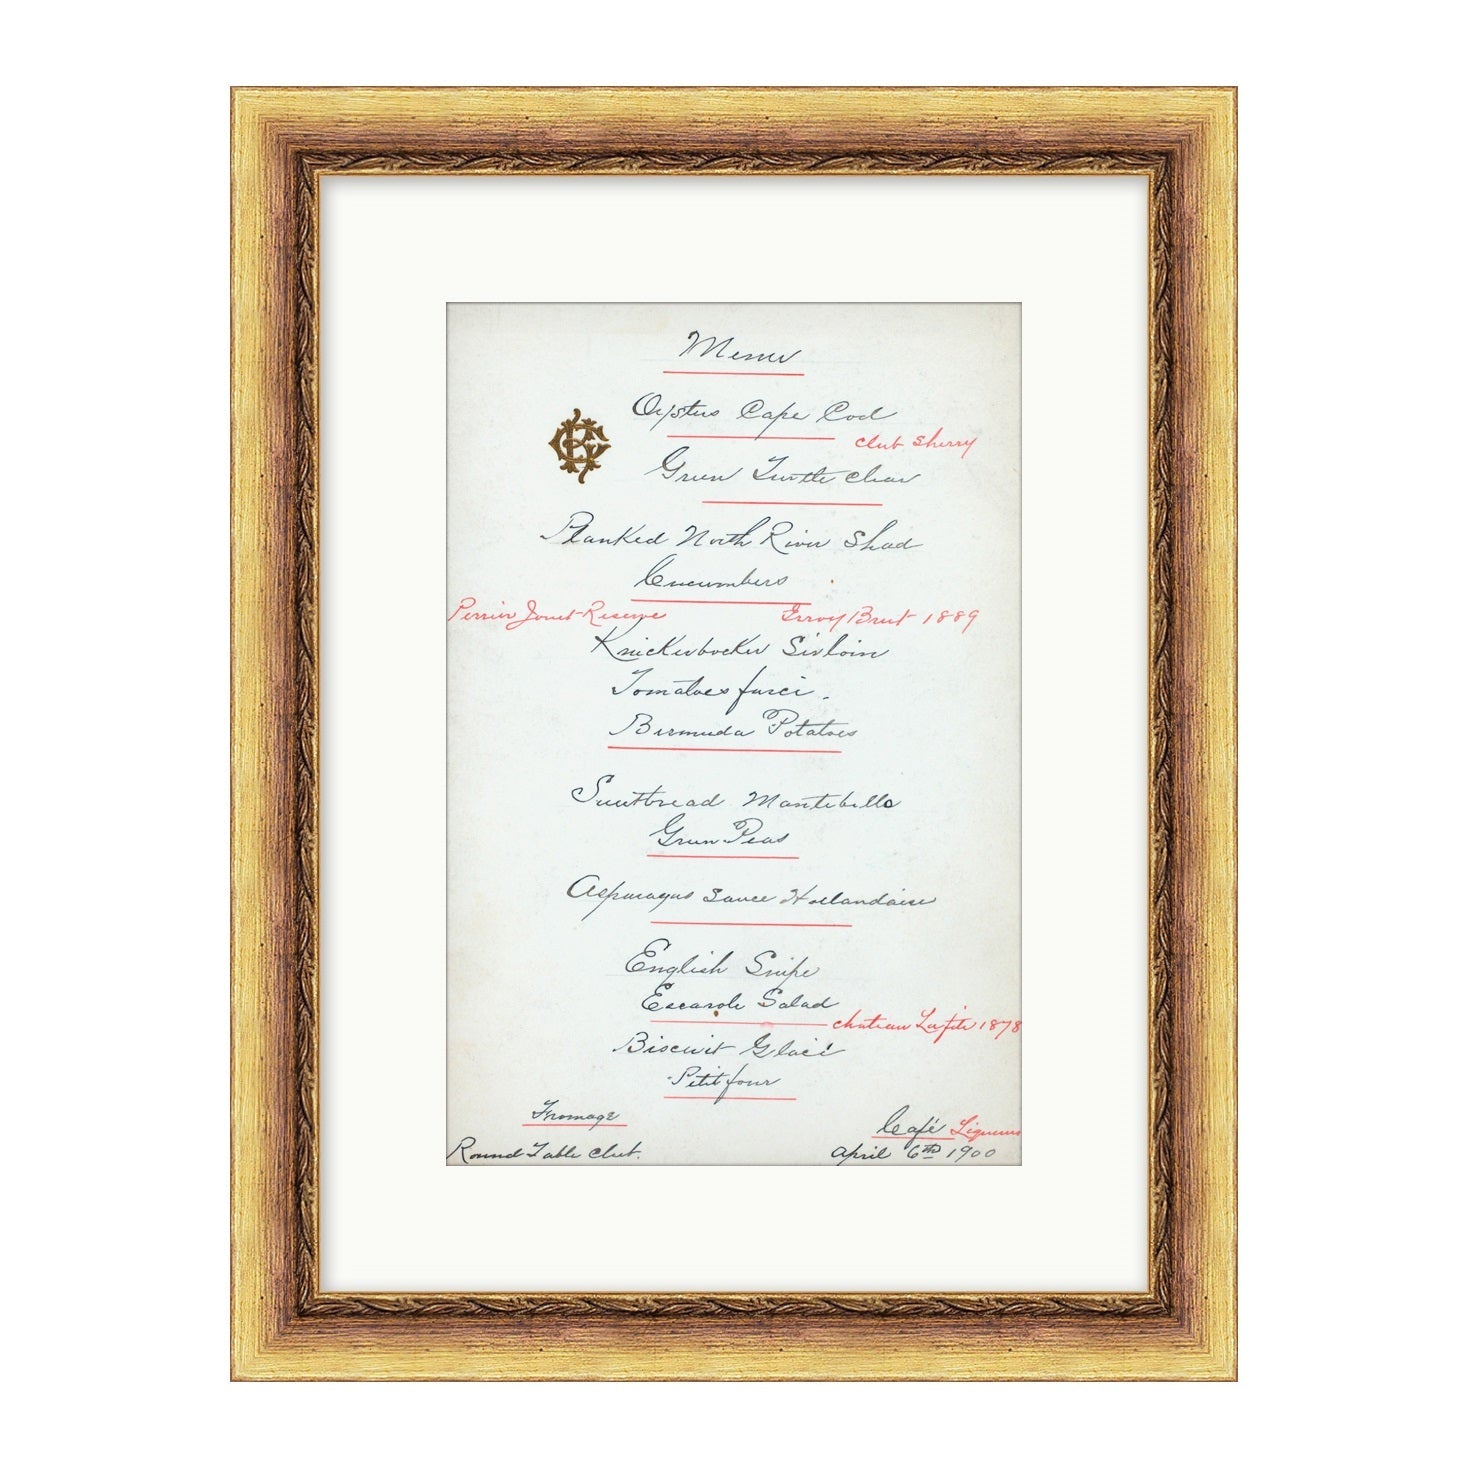 Menu
Oysters Cape Cod
Club Sherry
Green Turtle Clear
Planked North River Shad
Cucumbers
Perrier Jouet Reserve Irroy Brut 1889
Knickerbocker Sirloin
Tomatoes farci.
Bermuda Potatoes
Sweetbread Montebello
Green Peas
Asparagus Sauce Hollandaise
English Snipe
Escarole Salad
Chateau Lafite 1878
Biscuit Glacé
Petit four
Fromage
Café Liqueurs
Round Table Club.
April 6th 1900